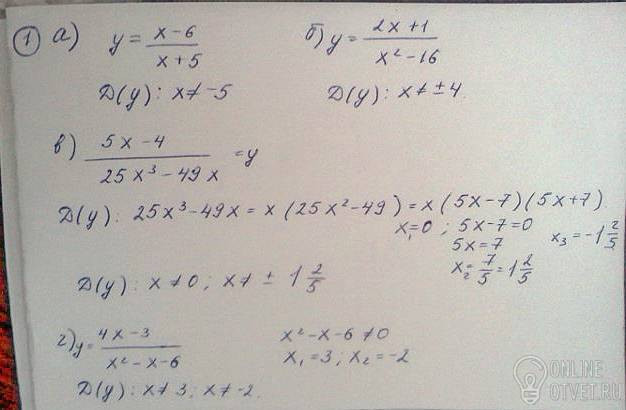 ① а) y = (x-6)/(x+5) б) y = (2x+1)/(x²-16)
D(y): x ≠ -5 D(y): x ≠ ±4.
в) (5x-4)/(25x³-49x) = y
D(y): 25x³-49x = x(25x²-49) = x(5x-7)(5x+7).
x₁=0; 5x-7=0 x₃=-1 2/5
5x=7
x₂=7/5=1 2/5
D(y): x ≠ 0; x ≠ ± 1 2/5
г) y = (4x-3)/(x²-x-6) x²-x-6 ≠ 0
x₁=3; x₂=-2
D(y): x ≠ 3; x ≠ -2.
ONLINE
OTVET.RU